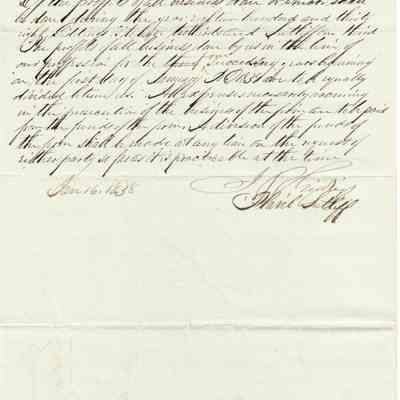 of the profits of all business
done during the year eighteen hundred and thirty
eight
The profits of all business done by us in the line of
our profession for the three succeeding years beginning
on the first day of January A.D. 1839 are to be equally
divided between us. All expenses necessarily occurring
in the prosecution of the business of the firm are to be paid
from the funds of the firm. A division of the funds of
the firm shall be made at any time on the request of
either party so far as it is practicable at the time
Jan. 16. 1838